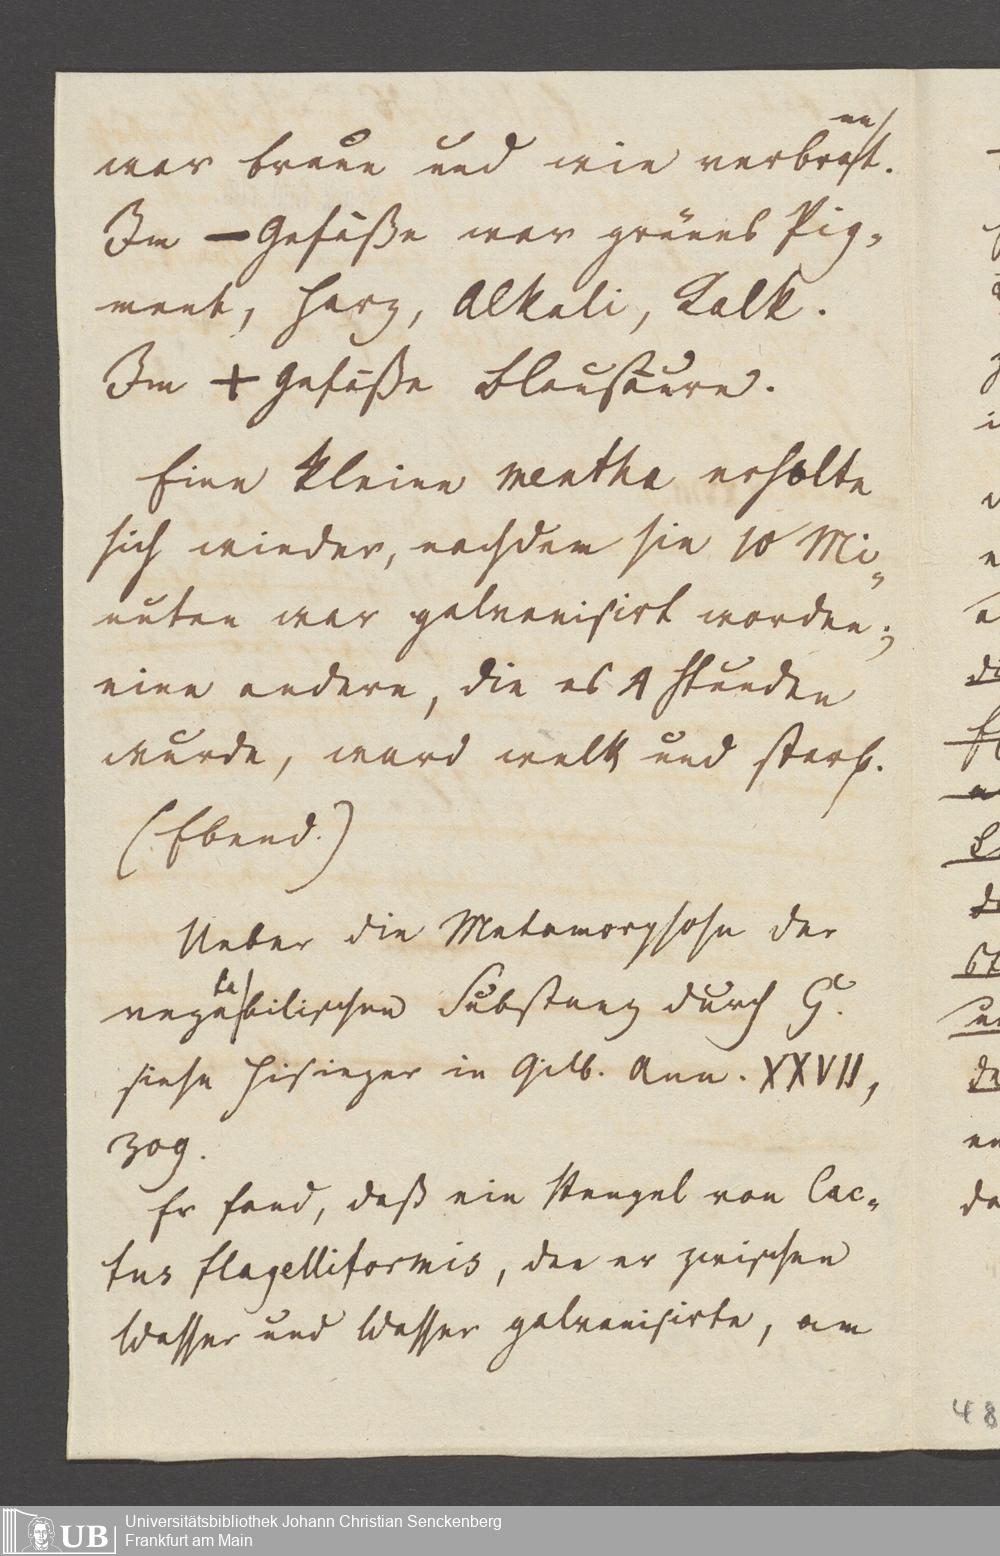 war braun und wie verbrannt.
Im – Gefäße war grünes Pig-
ment, Harz, Alkali, Kalk.
Im + Gefäße Blausäure.
Eine kleine mentha erholte
sich wieder, nachdem sie 10 Mi-
nuten war galvanisirt worden;
eine andere, die es 4 Stunden
wurde, ward welk und starb.
(Ebend.)
Ueber die Metamorphose der
vegetabilischen Substanz durch G.
siehe Hisinger in Gilb. Ann. XXVII,
309.
Er fand, daß ein Stengel von Cac-
tus flagelliformis, den er zwischen
Wasser und Wasser galvanisirte, am
48
UB
Universitätsbibliothek Johann Christian Senckenberg
Frankfurt am Main